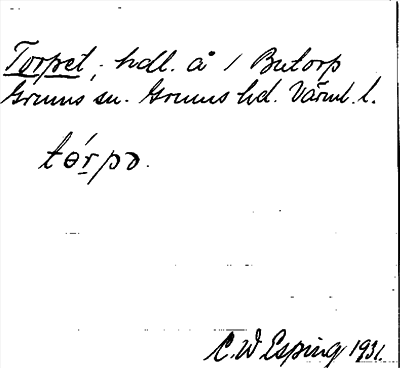 Torpet, hdl. å 1 Butorp
Grums sn. Grums hd. Värml. l.
tórpə.
C. W Esping 1931.